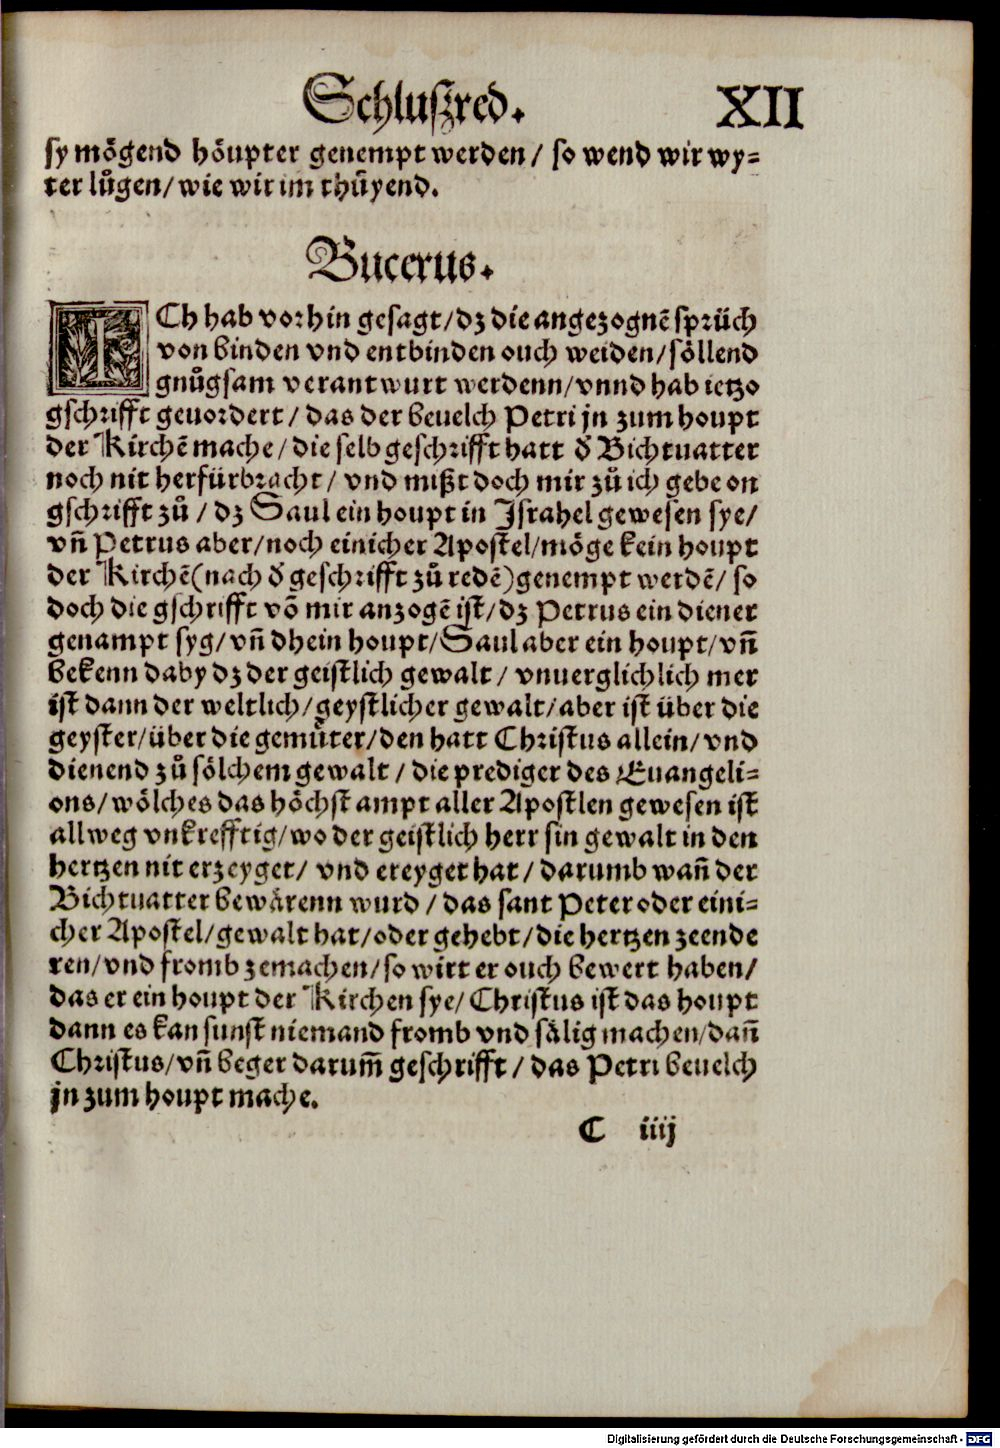 Schluſzred. XII
sy mögend höupter genempt werden / so wend wir wy⸗
ter lůgen / wie wir im thůyend.
Bucerus.
ICh hab vorhin gesagt / dz die angezognẽ sprüch
von binden vnd entbinden ouch weiden / söllend
gnůgsam verantwurt werdenn / vnnd hab ietzo
gschrifft geuordert / das der beuelch Petri jn zum houpt
der Kirchẽ mache / die selb geschrifft hatt d̕ Bichtuatter
noch nit herfürbracht / vnd mißt doch mir zů ich gebe on
gschrifft zů / dz Saul ein houpt in Jsrahel gewesen sye /
vñ Petrus aber / noch einicher Apostel / möge kein houpt
der Kirchẽ (nach d̕ geschrifft zů redẽ) genempt werdẽ / so
doch die gschrifft võ mir anzogẽ ist / dz Petrus ein diener
genampt syg / vñ dhein houpt / Saul aber ein houpt / vñ
bekenn daby dz der geistlich gewalt / vnuerglichlich mer
ist dann der weltlich / geystlicher gewalt / aber ist über die
geyster / über die gemůter / den hatt Christus allein / vnd
dienend zů sölchem gewalt / die prediger des Euangeli⸗
ons / wölches das höchst ampt aller Apostlen gewesen ist
allweg vnkrefftig / wo der geistlich herr sin gewalt in den
hertzen nit erzeyget / vnd ereyget hat / darumb wañ der
Bichtuatter bewärenn wurd / das sant Peter oder eini⸗
cher Apostel / gewalt hat / oder gehebt / die hertzen zeende
ren / vnd fromb zemachen / so wirt er ouch bewert haben /
das er ein houpt der Kirchen sye / Christus ist das houpt
dann es kan sunst niemand fromb vnd sälig machen / dañ
Christus / vñ beger darum̃ geschrifft / das Petri beuelch
jn zum houpt mache.
C iiij
Digitalisierung gefördert durch die Deutsche Forschungsgemeinschaft - DFG